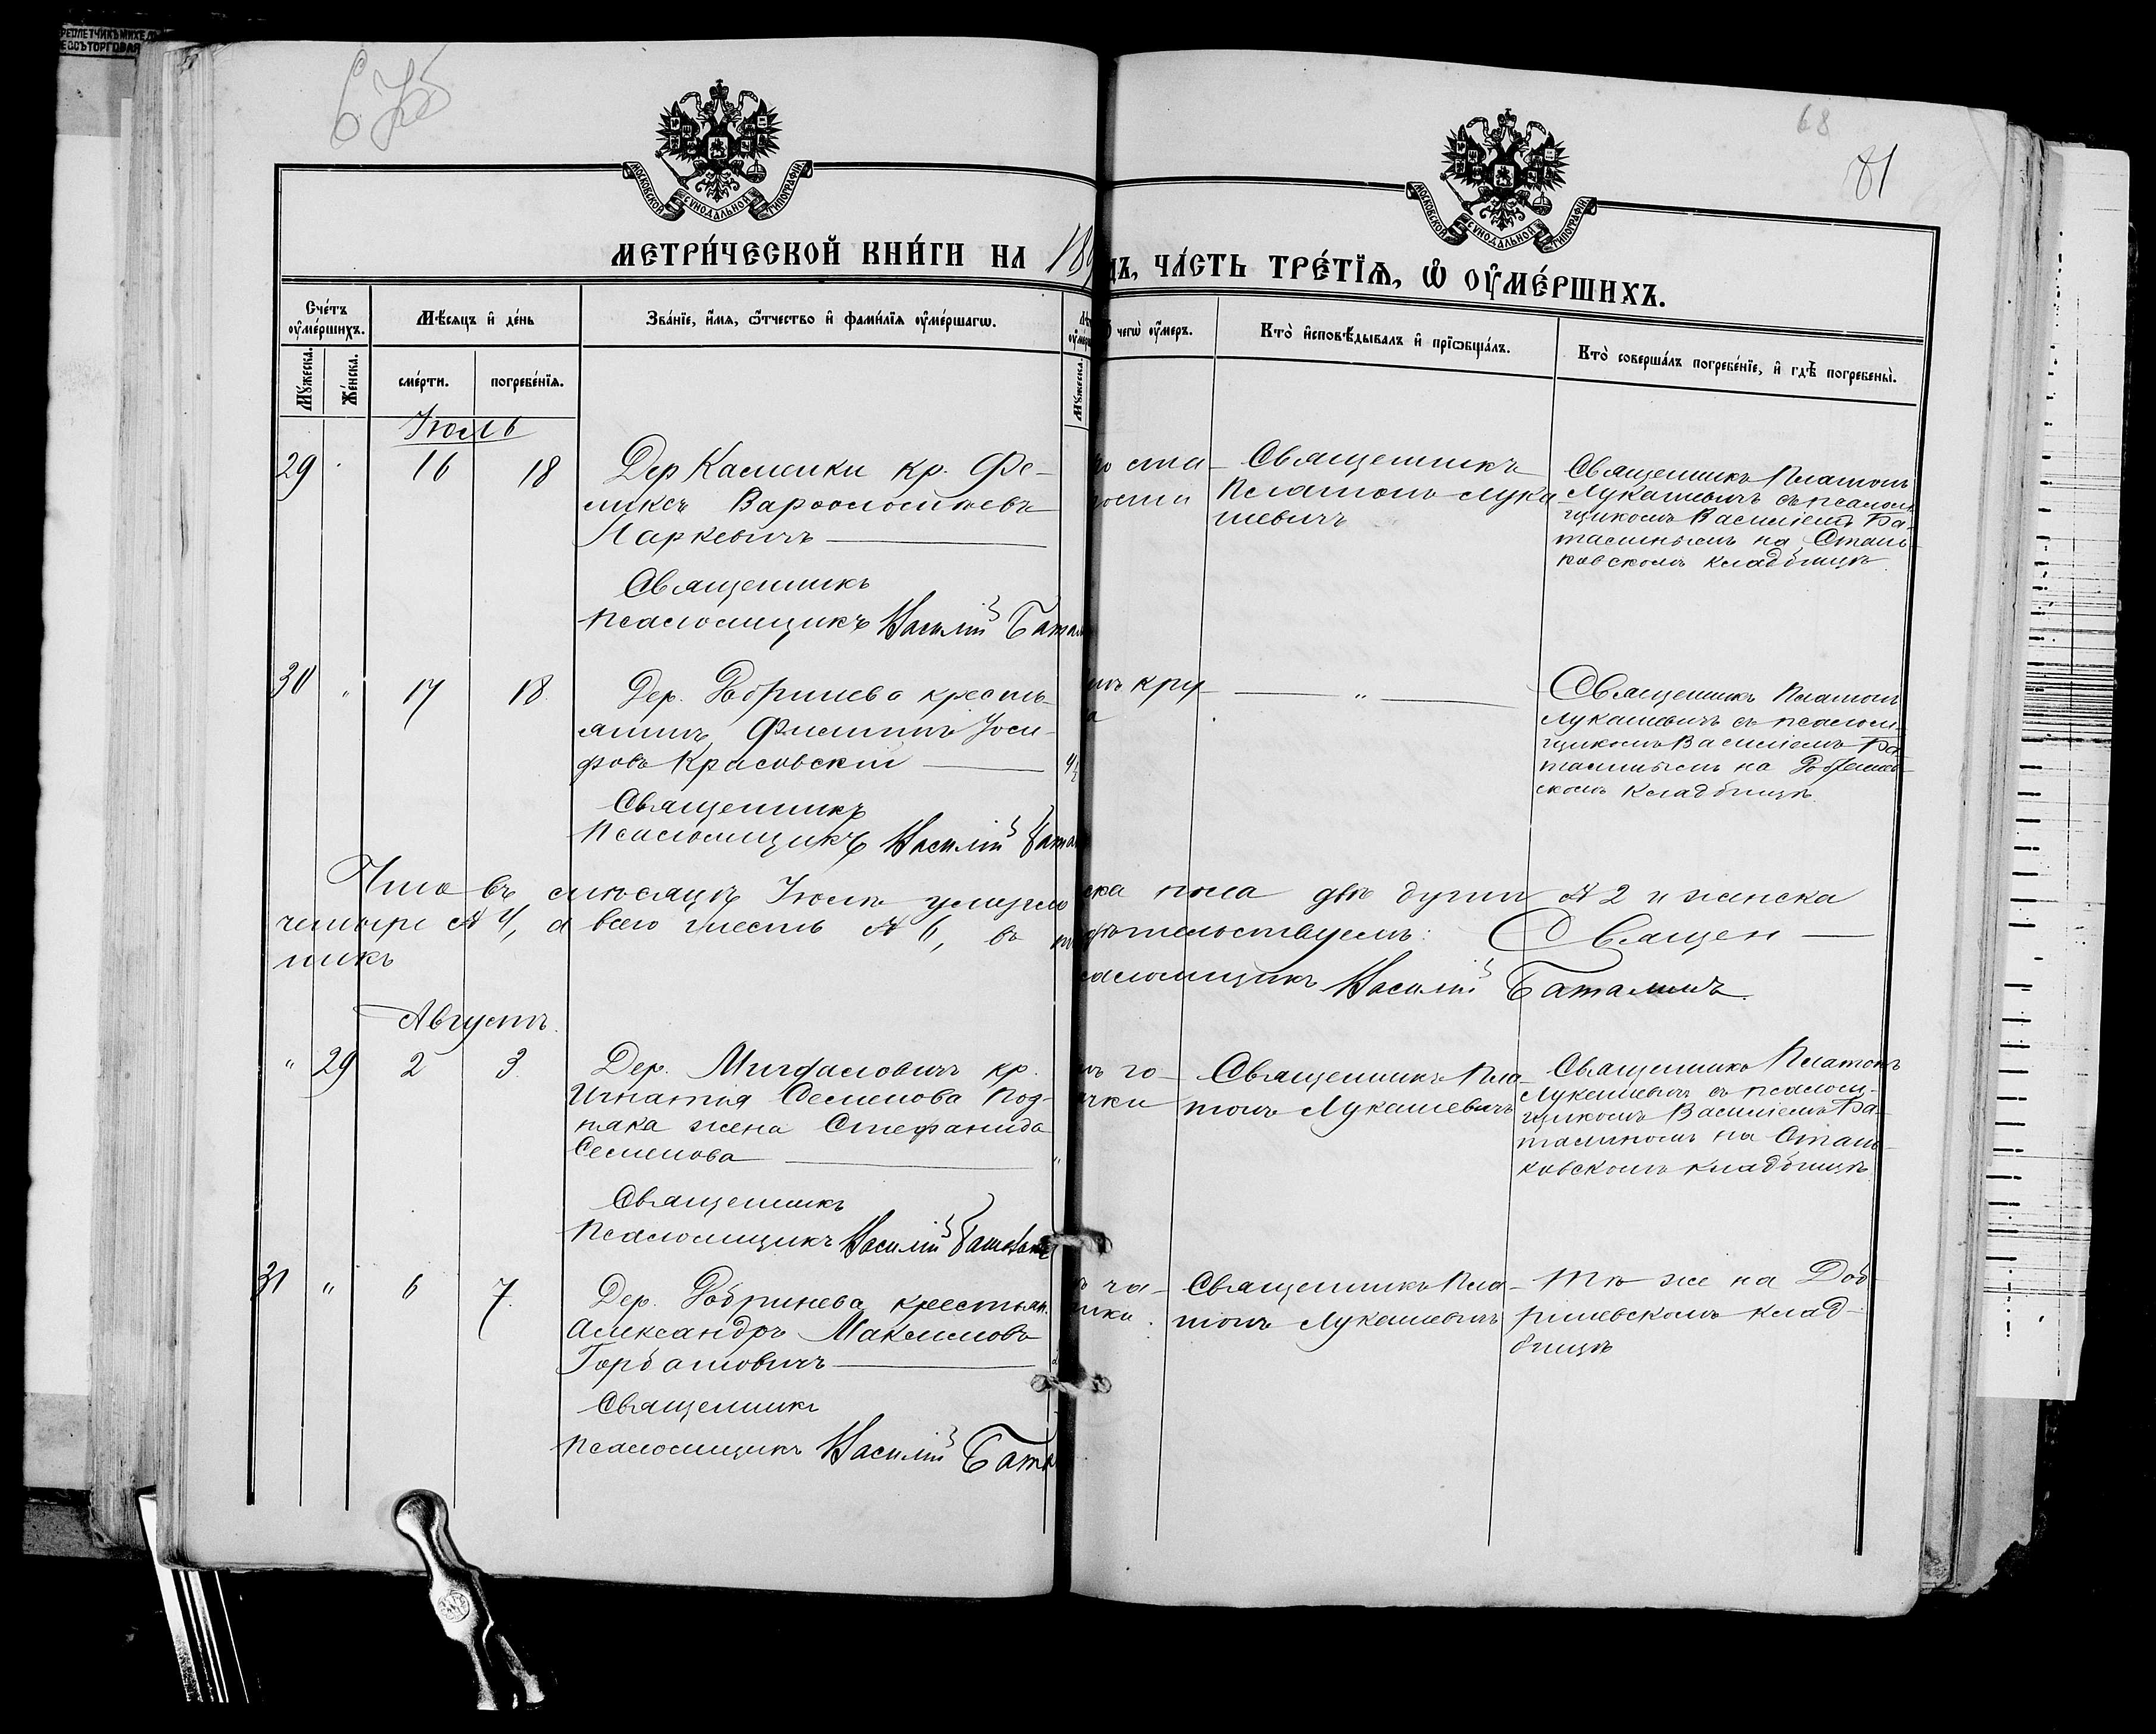 68
81
МОСКОВСКОЙ СѴНОДАЛЬНОЙ ТИПОГРАФІИ
МОСКОВСКОЙ СѴНОДАЛЬНОЙ ТИПОГРАФІИ
МЕТРИ́ЧЕСКОЙ КНИ́ГИ НА 189
ДЪ, ЧА́СТЬ ТРЕ́ТІѦ, Ѡ҆ ОУ҆МЕ́РШИХЪ.
Сче́тъ оу҆ме́ршихъ.
Мѣ́сяцъ и҆ де́нь
Зва́нїе, и҆́мя, ѻ҆́тчество и҆ фами́лїя оу҆ме́ршагѡ.
чегѡ̀ оу҆́меръ.
Кто̀ и҆сповѣ́дывалъ и҆ прїѡбща́лъ.
Кто̀ соверша́лъ погребе́нїе, и҆ гдѣ̀ погребены̀.
Му́жеска.
Же́нска.
сме́рти.
погребе́нїя.
Му́жеска.
Іюль
29 16 18 Дер Каменки кр. Фе-
ликсъ Варѳоломѣевъ
Ларкевичъ
Священникъ
Псаломщикъ Василій Батал
ста-
рости
Священникъ
Платонъ Лука
шевичъ
Священникъ Платонъ
Лукашевичъ съ псалом
щикомъ Василіемъ Ба-
талинымъ на Стань-
ковскомъ кладбищѣ
30 " 17 18 Дер. Добринева кресть-
янинъ Филиппъ Іоси-
фовъ Красовскій
Священникъ
Псаломщикъ Василій Батал
кру-
па
"
Священникъ Платонъ
Лукашевичъ съ псалом-
щикомъ Василіемъ Ба-
талинымъ на Добринев-
скомъ кладбищѣ.
Итого въ мѣсяцѣ Іюлѣ умерло
ска пола двѣ души № 2 и женска
четыре № 4, а всего шесть № 6, въ
дѣтельствуемъ: Священ-
никъ
саломщикъ Василій Баталинъ.
Августъ.
" 29 2 3 Дер. кр.
Игнатія Семенова Под-
жена Стефанида
Семенова "
Священникъ
Псаломщикъ Василій Баталинъ
го-
ячки
Священникъ Пла-
тонъ Лукашевичъ
Священникъ Платонъ
Лукашевичъ съ псалом-
щикомъ Василіемъ Ба-
талинымъ на Стань-
ковскомъ кладбищѣ
31 " 6 7. Дер. Добринева крестьян.
Александръ Максимовъ
Горбатовичъ
Священникъ
Псаломщикъ Василій Бата
ча-
Священникъ Пла-
тонъ Лукашевичъ
Тѣ же на Доб-
риневскомъ клад-
бищѣ